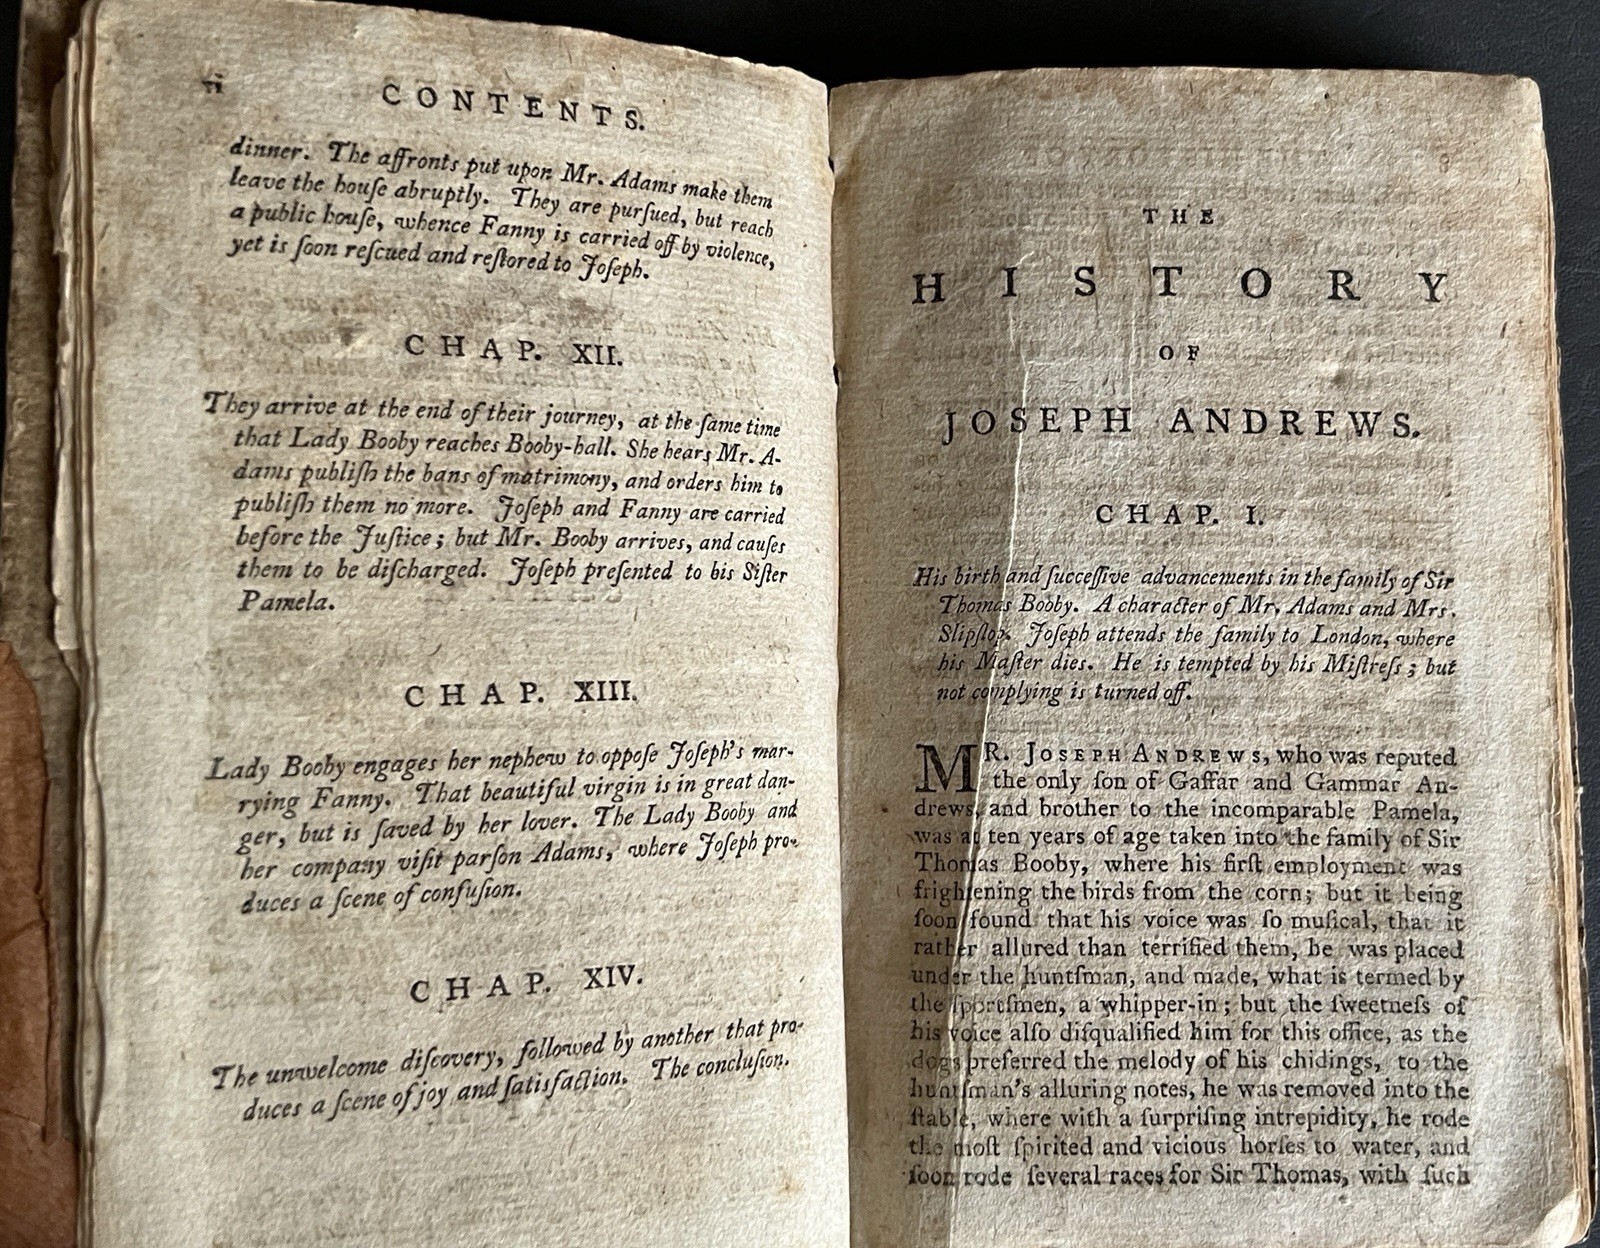 vi
CONTENTS.
dinner. The affronts put upon Mr. Adams make them
leave the houſe abruptly. They are purſued, but reach
a public houſe, whence Fanny is carried off by violence,
yet is ſoon reſcued and reſtored to Joſeph.
CHAP. XII.
They arrive at the end of their journey, at the ſame time
that Lady Booby reaches Booby-hall. She hears Mr. A-
dams publiſh the bans of matrimony, and orders him to
publiſh them no more. Joſeph and Fanny are carried
before the Juſtice; but Mr. Booby arrives, and cauſes
them to be diſcharged. Joſeph preſented to his Siſter
Pamela.
CHAP. XIII.
Lady Booby engages her nephew to oppoſe Joſeph's mar-
rying Fanny. That beautiful virgin is in great dan-
ger, but is ſaved by her lover. The Lady Booby and
her company viſit parſon Adams, where Joſeph pro-
duces a ſcene of confuſion.
CHAP. XIV.
The unwelcome diſcovery, followed by another that pro-
duces a ſcene of joy and ſatisfaction. The concluſion.
THE
HISTORY
OF
JOSEPH ANDREWS.
CHAP. I.
His birth and ſucceſſive advancements in the family of Sir
Thomas Booby. A character of Mr. Adams and Mrs.
Slipſlop. Joſeph attends the family to London, where
his Maſter dies. He is tempted by his Miſtreſs; but
not complying is turned off.
MR. JOSEPH ANDREWS, who was reputed
the only ſon of Gaffar and Gammar An-
drews, and brother to the incomparable Pamela,
was at ten years of age taken into the family of Sir
Thomas Booby, where his firſt employment was
frightening the birds from the corn; but it being
ſoon found that his voice was ſo muſical, that it
rather allured than terrified them, he was placed
under the huntſman, and made, what is termed by
the ſportſmen, a whipper-in; but the ſweetneſs of
his voice alſo diſqualified him for this office, as the
dogs preferred the melody of his chidings, to the
huntſman's alluring notes, he was removed into the
ſtable, where with a ſurpriſing intrepidity, he rode
the moſt ſpirited and vicious horſes to water, and
ſoon rode ſeveral races for Sir Thomas, with ſuch